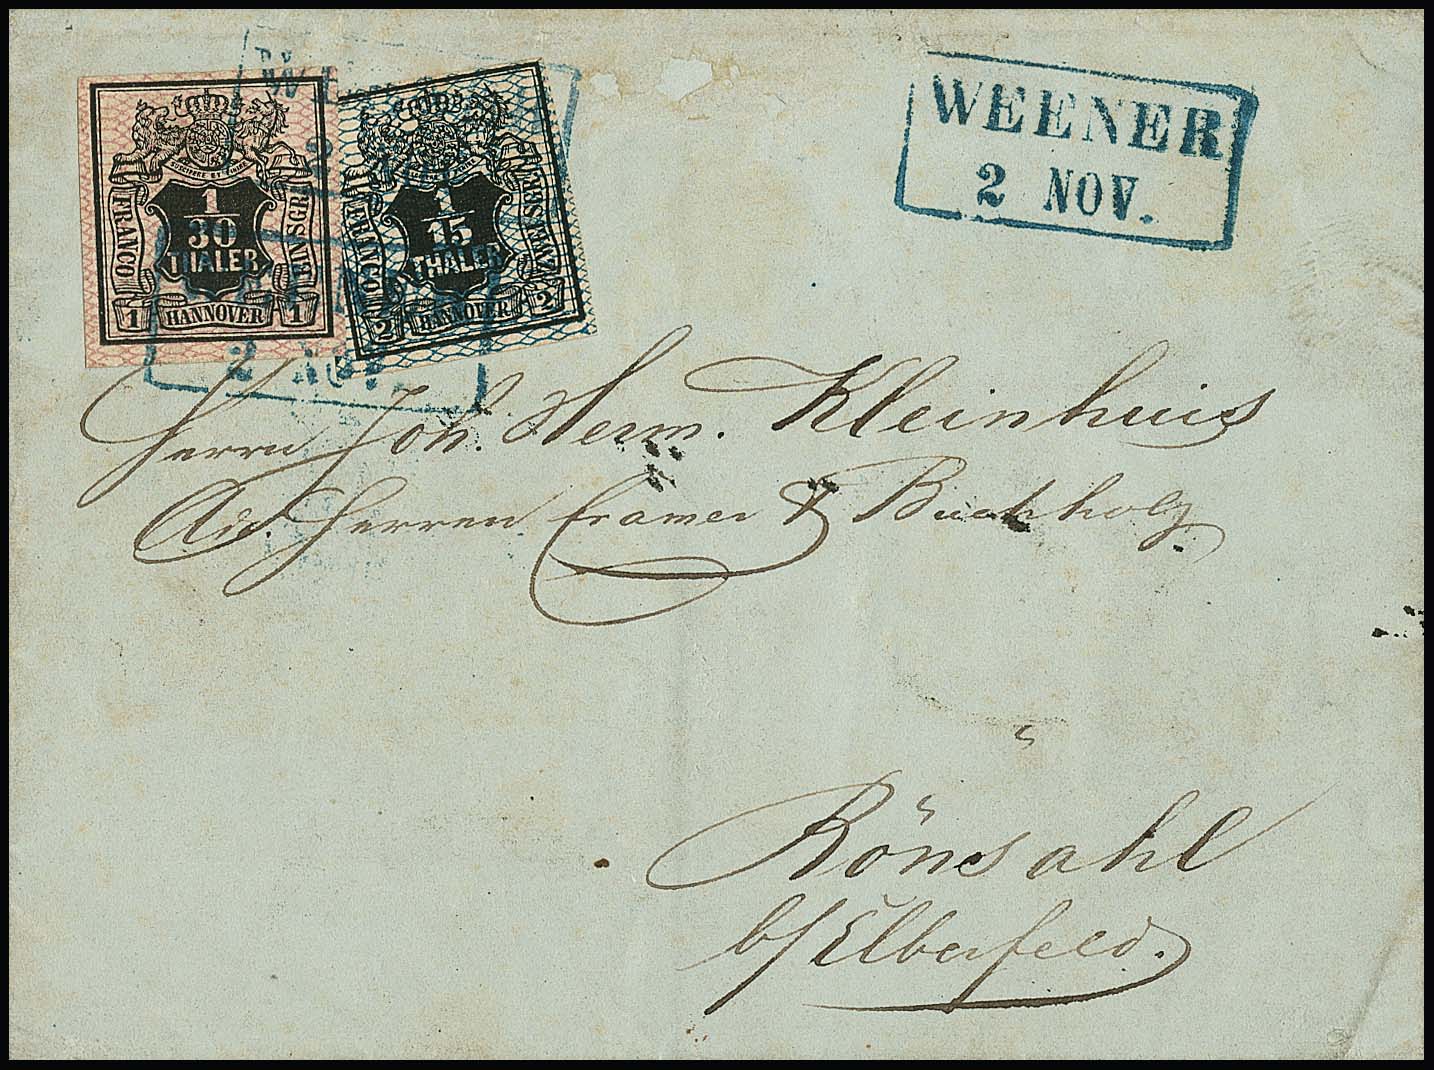 WEENER
2 NOV.
SUSCIPERE ET FINIRE
FRANCO
1
30
THALER
EIN SGR.
1 HANNOVER 1
FRANCO
1
15
THALER
ZWEI SGR.
2 HANNOVER 2
2 NOV.
Herrn Joh. Herm. Kleinhuis
Adr. Herren Cramer & Buchholz
Rönsahl
b/Elberfeld.